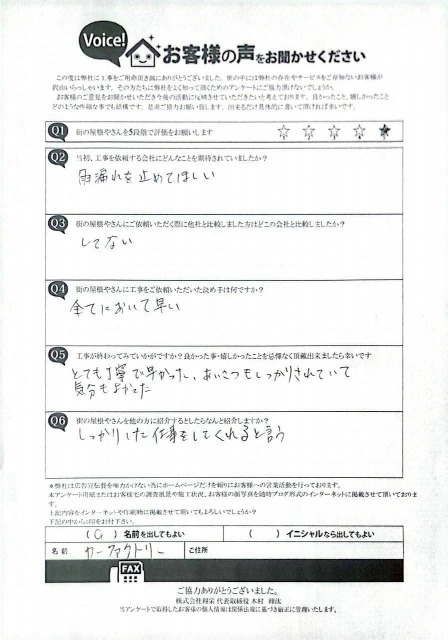 Voice!
お客様の声をお聞かせください
この度は弊社に工事をご用命頂き誠にありがとうございました。世の中には弊社の存在やサービスをご存知ないお客様が
沢山いらっしゃいます。その方たちに弊社をよく知って頂くためのアンケートにご協力頂けないでしょうか。
お客様のご意見をお聞かせいただき今後の活動に反映させていただきたいと考えております。良かったこと、嬉しかったこと
どのような些細な事でも結構です。是非ご協力お願い致します。出来るだけ具体的に書いて頂ければ幸いです。
Q1 街の屋根やさんを5段階で評価をお願いします ☆ ☆ ☆ ☆ ★
Q2 当初、工事を依頼する会社にどんなことを期待されていましたか?
雨漏れを止めてほしい
Q3 街の屋根やさんにご依頼いただく際に他社と比較しました方はどこの会社と比較しましたか?
してない
Q4 街の屋根やさんに工事をご依頼いただいた決め手は何ですか?
全てにおいて早い
Q5 工事が終わってみていかがですか?良かった事・嬉しかったことを忌憚なく頂戴出来ましたら幸いです
とても丁寧で早かった、あいさつもしっかりされていて
気分もよかった
Q6 街の屋根やさんを他の方に紹介するとしたらなんと紹介しますか?
しっかりした仕事をしてくれると言う
*弊社は広告宣伝費を極力かけない為にホームページだけを頼りにお客様への営業活動を行っております。
本アンケート用紙またはお客様宅の調査風景や施工状況、お客様の顔写真を随時ブログ形式のインターネットに掲載させて頂いておりま
す。
上記内容をインターネットや印刷物に掲載させて頂いてもよろしいでしょうか?
下記の中から○印をお付け下さい。
(○) 名前を出してもよい ( ) イニシャルなら出してもよい
名前 カーファクトリー ご住所
FAX
ご協力ありがとうございました。
株式会社翔栄 代表取締役 木村 翔汰
当アンケートで取得したお客様の個人情報は関係法規に基づき厳正に管理いたします。